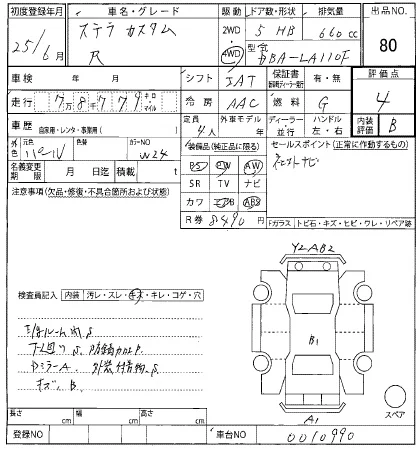 初度登録年月 車名・グレード 駆動 ドア数・形状 排気量 出品NO.
25/6月 ステラ カスタム R 2WD 4WD 5 HB 660 cc 80
型式 DBA-LA110F
車検 年 月 シフト IAT 保証書 有・無 評価点
走行 7万8千779 キロ マイル 冷房 AAC 燃料 G 4
車歴 自家用・レンタ・事業用( ) 定員 4人 外車モデル 年 ディーラー・並行 ハンドル 左・右 内装評価 B
外色 元色 パール 色替 カラーNO W24 装備品(純正品に限る) セールスポイント(正常に作動するもの)
名義変更期限 月 日迄 積載 t PS PW AW
SR TV ナビ
注意事項(欠品・修復・不具合箇所および状態) カワ エアB ABS
R券 8490円 Fガラス トビ石・キズ・ヒビ・ワレ・リペア跡
Y2AB2
検査員記入 内装 汚レ・スレ・キズ・キレ・コゲ・穴
B1
キズ、B。
A1
スペア
長さ cm 幅 cm 高さ cm
登録NO 車台NO 0010990